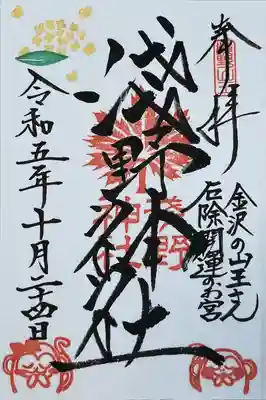 奉拝
金沢の山王さん
厄除開運のお宮
浅野神社
浅野
神社
令和五年十月二十四日